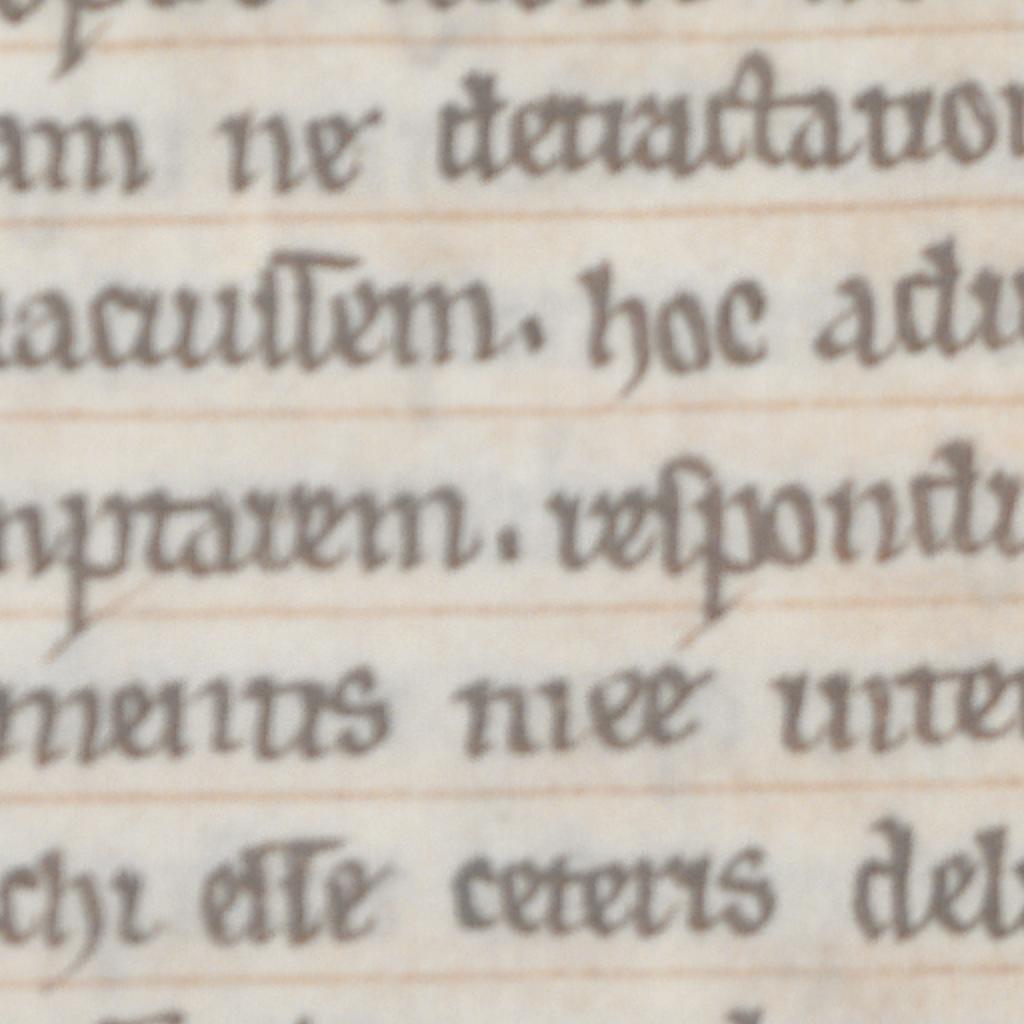 am ne detractation
acuissem. hoc adu
mptarem. respondi
mentis mee inter
chi esse ceteris deb